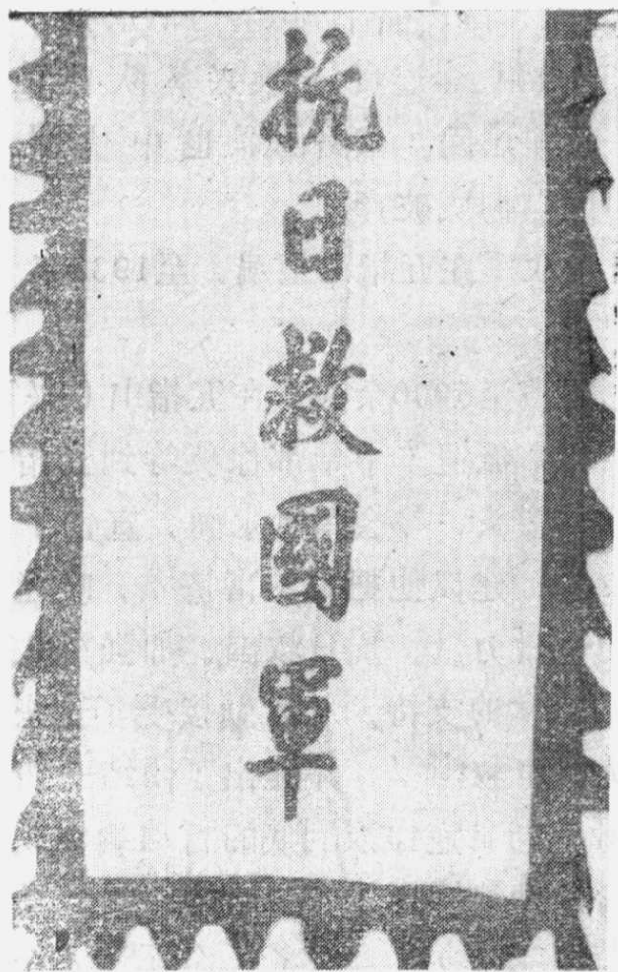 抗日救國軍